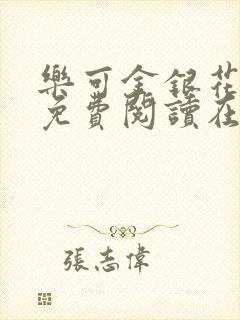 樂可金銀花
免費閱讀在
張志偉